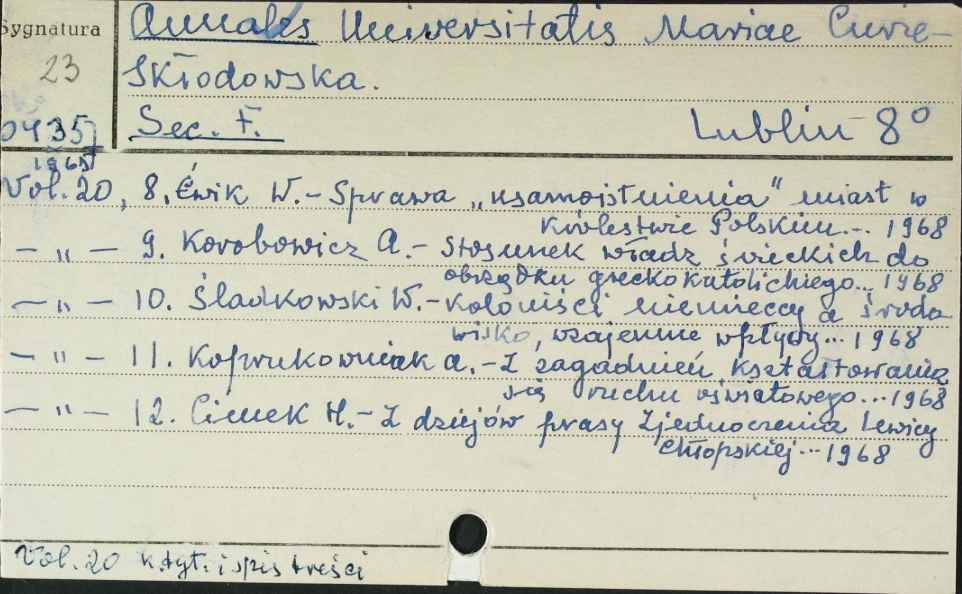 Sygnatura
23
0435
Annales Universitatis Mariae Curie-
Skłodowska.
Sec. F. Lublin 8°
1965
Vol. 20, 8. Ćwik W. - Sprawa „usamoistnienia" miast w
Królestwie Polskim... 1968
— „ — 9. Korobowicz A. - Stosunek władz świeckich do
obrządku greckokatolichiego... 1968
— „ — 10. Śladkowski W. - Koloniści niemieccy a środo
wisko, wzajemne wpływy... 1968
— „ — 11. Koprukowniak A. - Z zagadnień kształtowania
się ruchu oświatowego... 1968
— „ — 12. Cimek H. - Z dziejów prasy Zjednoczenia Lewicy
Chłopskiej... 1968
Vol. 20 k.tyt. i spis treści